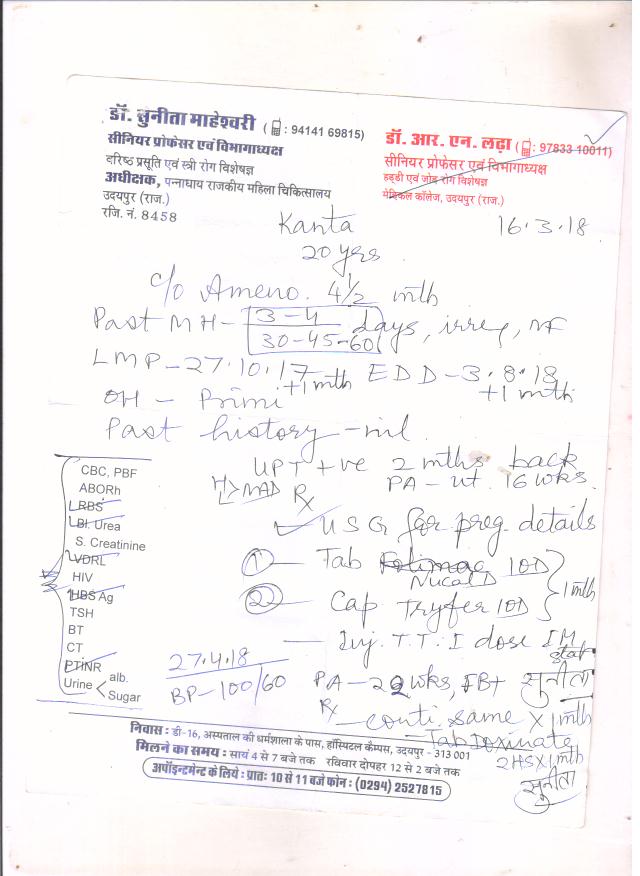 डॉ. सुनीता माहेश्वरी (: 94141 69815)
सीनियर प्रोफेसर एवं विभागाध्यक्ष
वरिष्ठ प्रसूति एवं स्त्री रोग विशेषज्ञ
अधीक्षक, पन्नाधाय राजकीय महिला चिकित्सालय
उदयपुर (राज.)
रजि. नं. 8458
डॉ. आर. एन. लढ़ा (: 97833 10011)
सीनियर प्रोफेसर एवं विभागाध्यक्ष
हड्डी एवं जोड़ रोग विशेषज्ञ
मेडिकल कॉलेज, उदयपुर (राज.)
Kanta 16.3.18
20 yrs
c/o Ameno. 4½ mth
Past MH - 3-4 days, irreg, NF
30-45-60
LMP - 27.10.17 EDD - 3.8.18
+1 mth +1 mth
OH - Primi
Past history - nil
UPT +ve 2 mths back
PA - ut. 16 wks.
Rx
USG for preg. details
① Tab 1OD
Nucal D
② Cap Tryfer 1OD
1 mth
- Inj. T.T. I dose IM
stat
सुनीता
CBC, PBF
ABORh
RBS
Bl. Urea
S. Creatinine
VDRL
HIV
HBS Ag
TSH
BT
CT
PTINR
Urine < alb.
Sugar
27.4.18
BP - 100/60 PA - 22 wks, FBt
Rx
- conti. same x 1 mth
- Tab Doxinate
2HS x 1 mth
सुनीता
निवास : डी-16, अस्पताल की धर्मशाला के पास, हॉस्पिटल कैम्पस, उदयपुर - 313 001
मिलने का समय : सायं 4 से 7 बजे तक रविवार दोपहर 12 से 2 बजे तक
अपॉइन्टमेन्ट के लिये : प्रातः 10 से 11 बजे फोन : (0294) 2527815